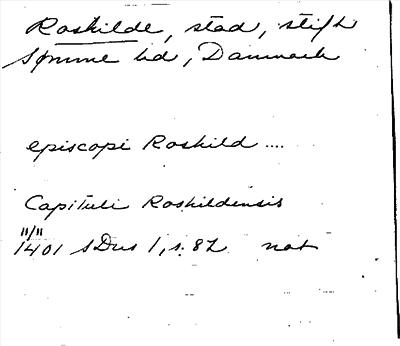 Roskilde, stad, stift
Sømme hd, Danmark
episcopi Roskild ....
Capituli Roskildensis
11/11
1401 SDns 1, s. 82 not